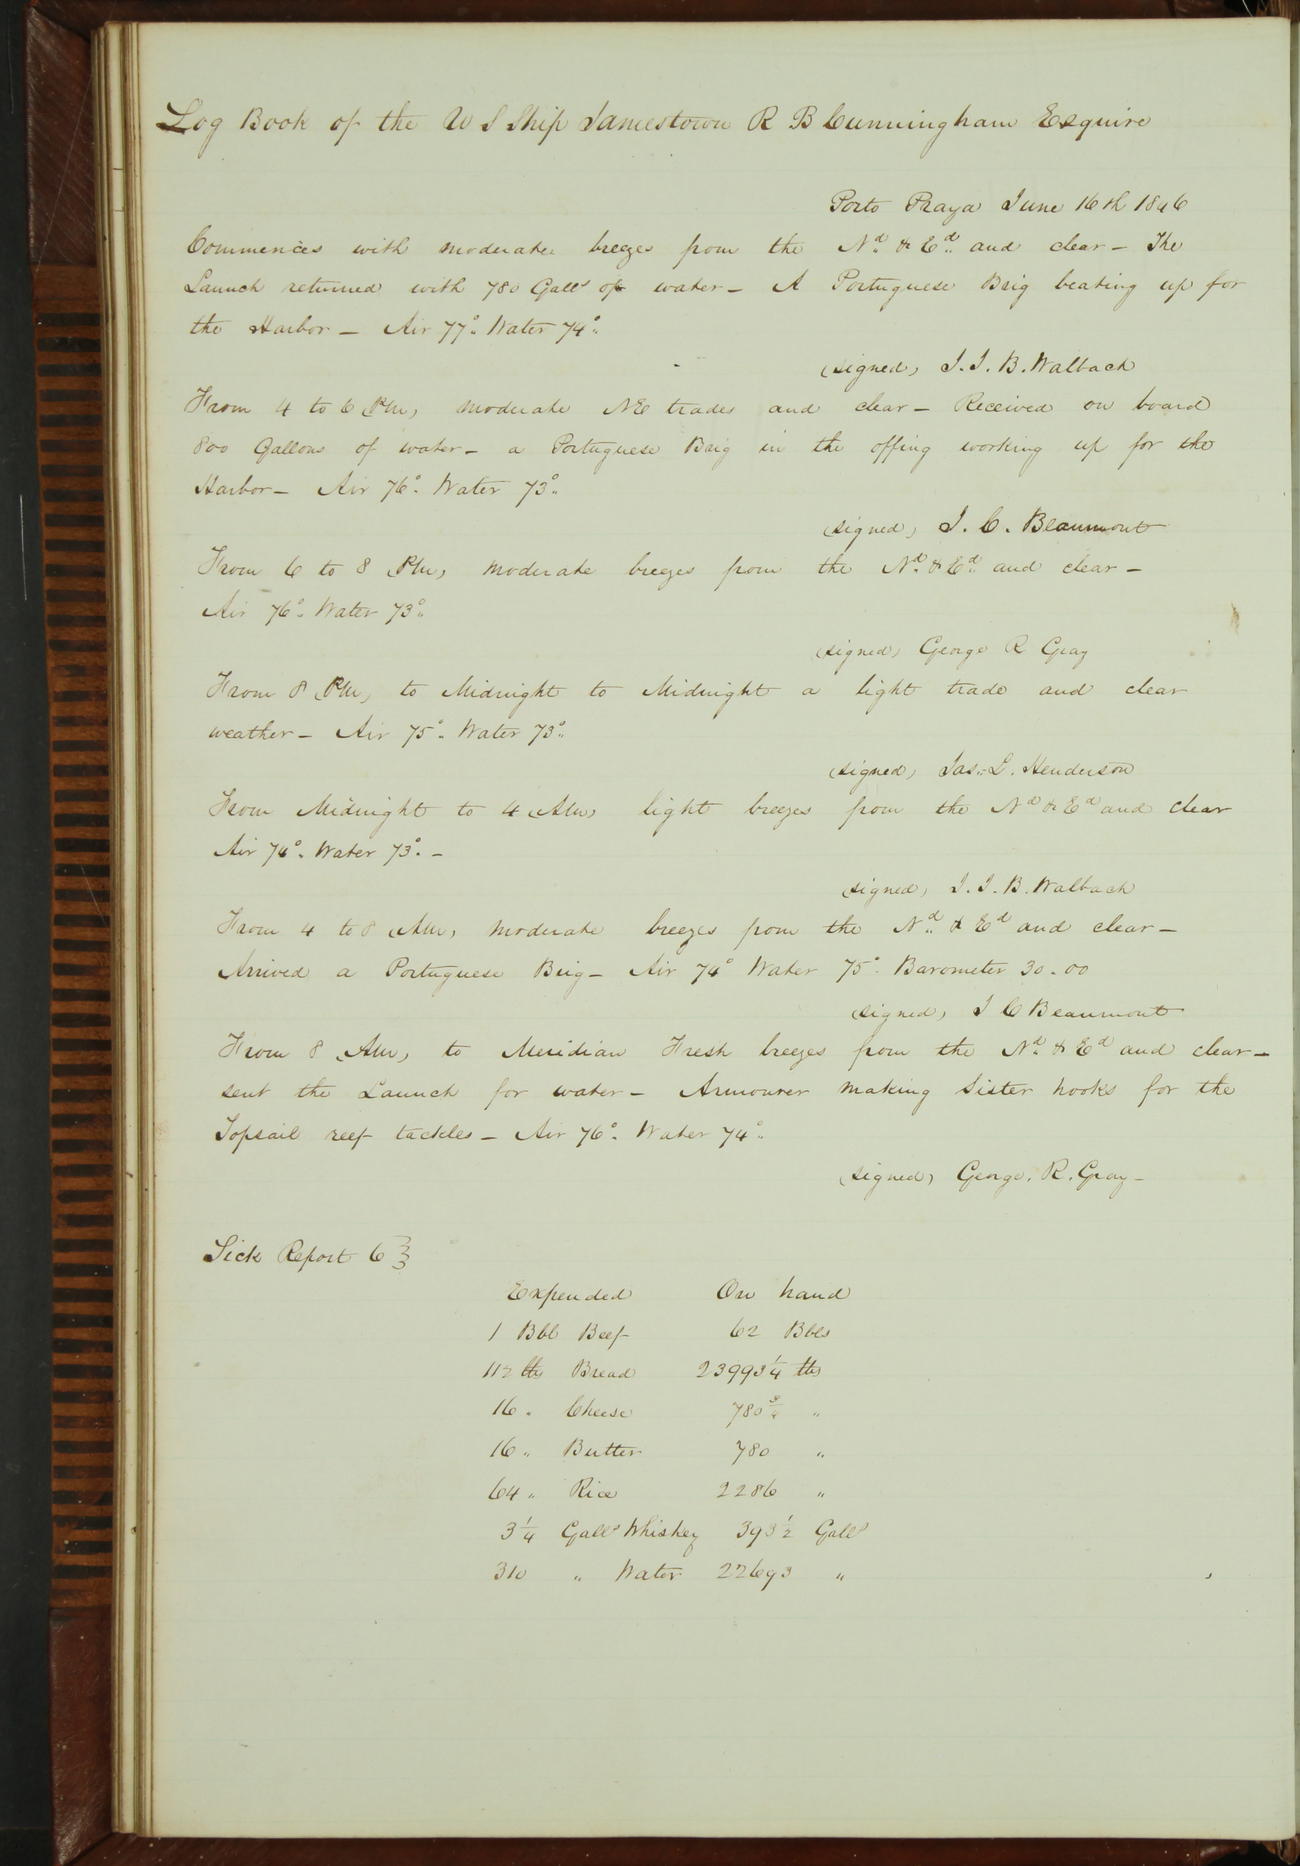 Log Book of the U S Ship Jamestown R B Cunningham Esquire
Porto Praya June 16th 1846
Commences with moderate breezes from the Nd & Ed and clear – The
Launch returned with 780 Galls of water – A Portuguese Brig beating up for
the Harbor – Air 77° Water 74°
(signed) J. J. B. Walbach
From 4 to 6 PM, moderate NE trades and clear – Received on board
800 Gallons of water – a Portuguese Brig in the offing working up for the
Harbor – Air 76° Water 73°
(signed) J. C. Beaumont
From 6 to 8 PM, moderate breezes from the Nd & Ed and clear –
Air 76° Water 73°
(signed) George R Gray
From 8 PM, to Midnight to Midnight a light trade and clear
weather – Air 75° Water 73°
(signed) Jas. L. Henderson
From Midnight to 4 AM, light breezes from the Nd & Ed and clear
Air 74° Water 73° –
(signed) J. J. B. Walbach
From 4 to 8 AM, moderate breezes from the Nd & Ed and clear –
Arrived a Portuguese Brig – Air 74° Water 75° Barometer 30.00
(signed) J C Beaumont
From 8 AM, to Meridian Fresh breezes from the Nd & Ed and clear –
sent the Launch for water – Armourer making Sister hooks for the
Topsail reef tackles – Air 76° Water 74°
(signed) George. R. Gray –
Sick Report 6 }
Expended On hand
1 Bbl Beef 62 Bbls
112 lbs Bread 23993 1/4 lbs
16 " Cheese 780 3/4 "
16 " Butter 780 "
64 " Rice 2286 "
3 1/4 Galls Whiskey 393 1/2 Galls
310 " Water 22693 "